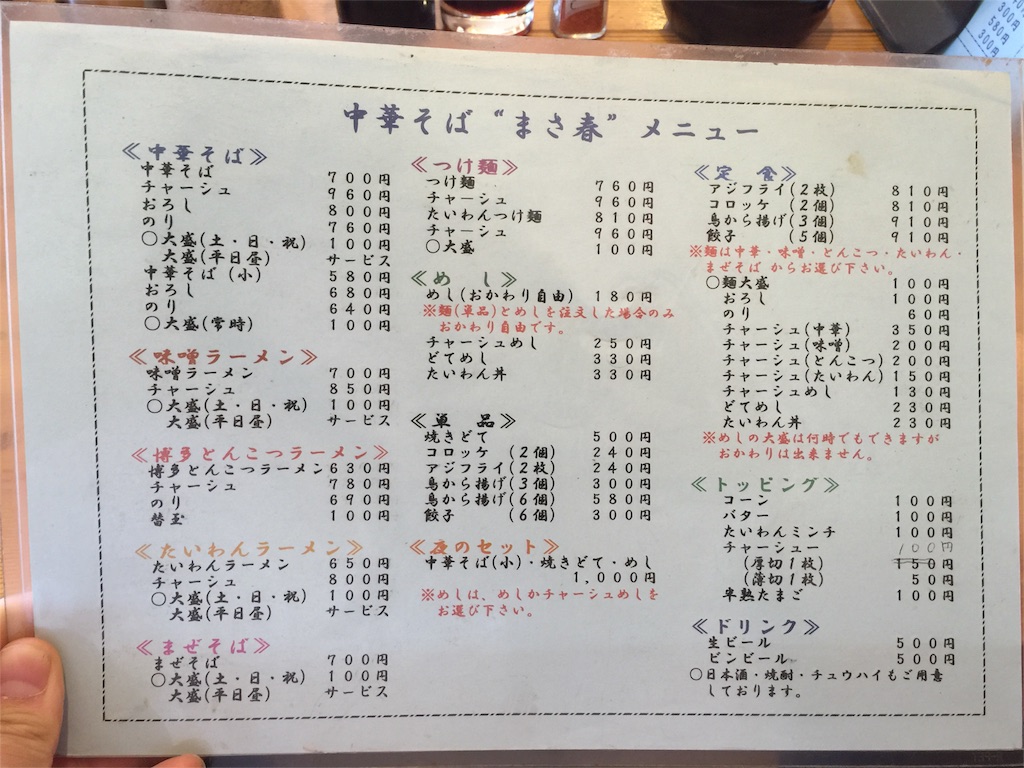 中華そば“まさ春”メニュー
≪中華そば≫
中華そば 700円
チャーシュ 960円
おろし 800円
のり 760円
〇大盛(土・日・祝) 100円
大盛(平日昼) サービス
中華そば(小) 580円
おろし 680円
のり 640円
〇大盛(常時) 100円
≪味噌ラーメン≫
味噌ラーメン 700円
チャーシュ 850円
〇大盛(土・日・祝) 100円
大盛(平日昼) サービス
≪博多とんこつラーメン≫
博多とんこつラーメン 630円
チャーシュ 780円
のり 690円
替玉 100円
≪たいわんラーメン≫
たいわんラーメン 650円
チャーシュ 800円
〇大盛(土・日・祝) 100円
大盛(平日昼) サービス
≪まぜそば≫
まぜそば 700円
〇大盛(土・日・祝) 100円
大盛(平日昼) サービス
≪つけ麺≫
つけ麺 760円
チャーシュ 960円
たいわんつけ麺 810円
チャーシュ 960円
〇大盛 100円
≪めし≫
めし(おかわり自由) 180円
※麺(単品)とめしを注文した場合のみ
おかわり自由です。
チャーシュめし 250円
どてめし 330円
たいわん丼 330円
≪単品≫
焼きどて 500円
コロッケ (2個) 240円
アジフライ(2枚) 240円
鳥から揚げ(3個) 300円
鳥から揚げ(6個) 580円
餃子 (6個) 300円
≪夜のセット≫
中華そば(小)・焼きどて・めし
1,000円
※めしは、めしかチャーシュめしを
お選び下さい。
≪定食≫
アジフライ(2枚) 810円
コロッケ (2個) 810円
鳥から揚げ(3個) 910円
餃子 (5個) 910円
※麺は中華・味噌・とんこつ・たいわん・
まぜそば からお選び下さい。
〇麺大盛 100円
おろし 100円
のり 60円
チャーシュ(中華) 350円
チャーシュ(味噌) 200円
チャーシュ(とんこつ) 200円
チャーシュ(たいわん) 150円
チャーシュめし 130円
どてめし 230円
たいわん丼 230円
※めしの大盛は何時でもできますが
おかわりは出来ません。
≪トッピング≫
コーン 100円
バター 100円
たいわんミンチ 100円
チャーシュー 100円
(厚切1枚) 150円
(薄切1枚) 50円
半熟たまご 100円
≪ドリンク≫
生ビール 500円
ビンビール 500円
〇日本酒・焼酎・チュウハイもご用意
しております。
300円
580円
300円